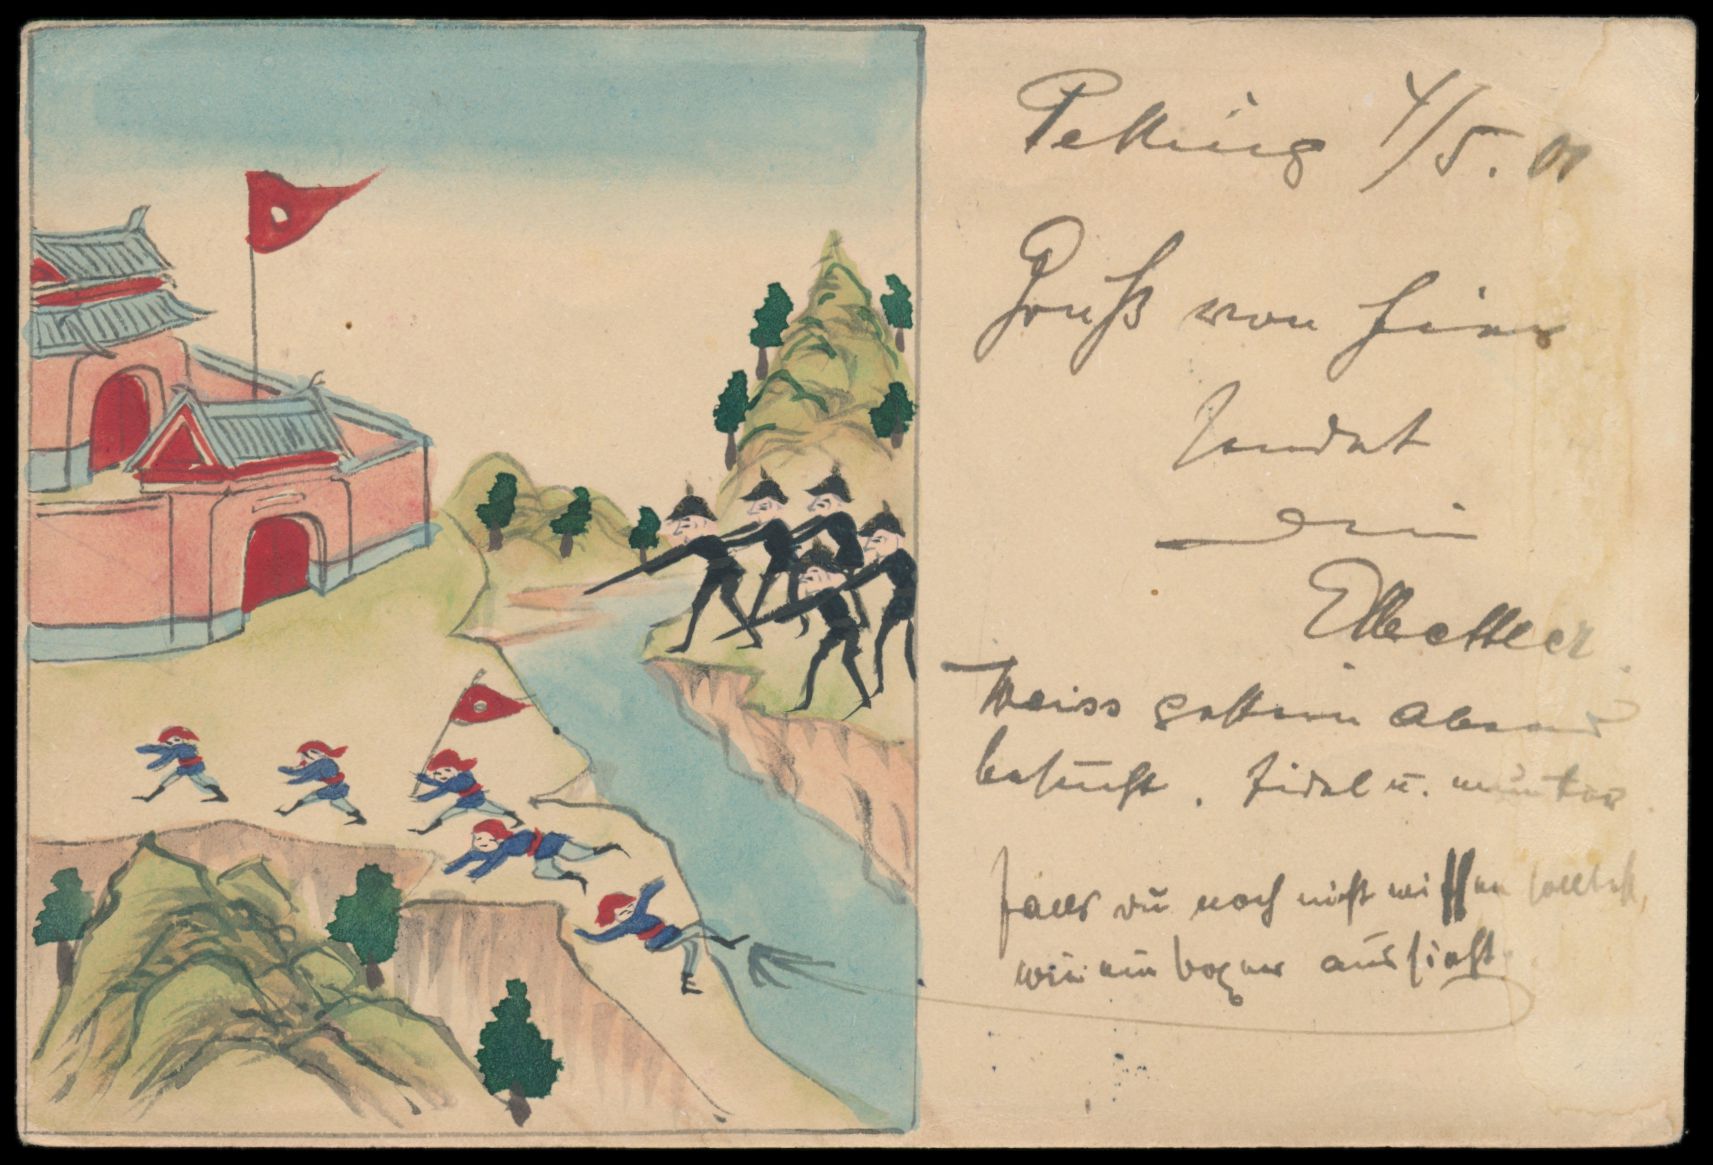 Peking 4/5. 01
Gruß von hier
sendet
Dein
Weiss gestern Abend
besucht. Fidel u. munter
Falls du noch nicht wissen solltest,
wie ein Boxer aussieht